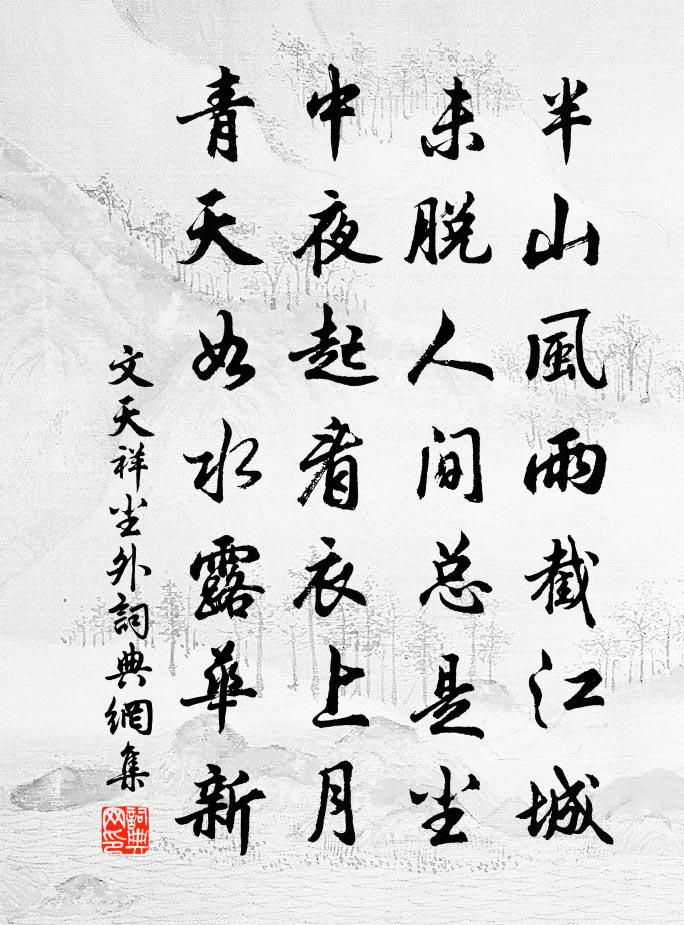 半山風雨截江城
未脱人间总是尘
中夜起看衣上月
青天如水露華新
文天祥尘外詞典網集
詞典网印